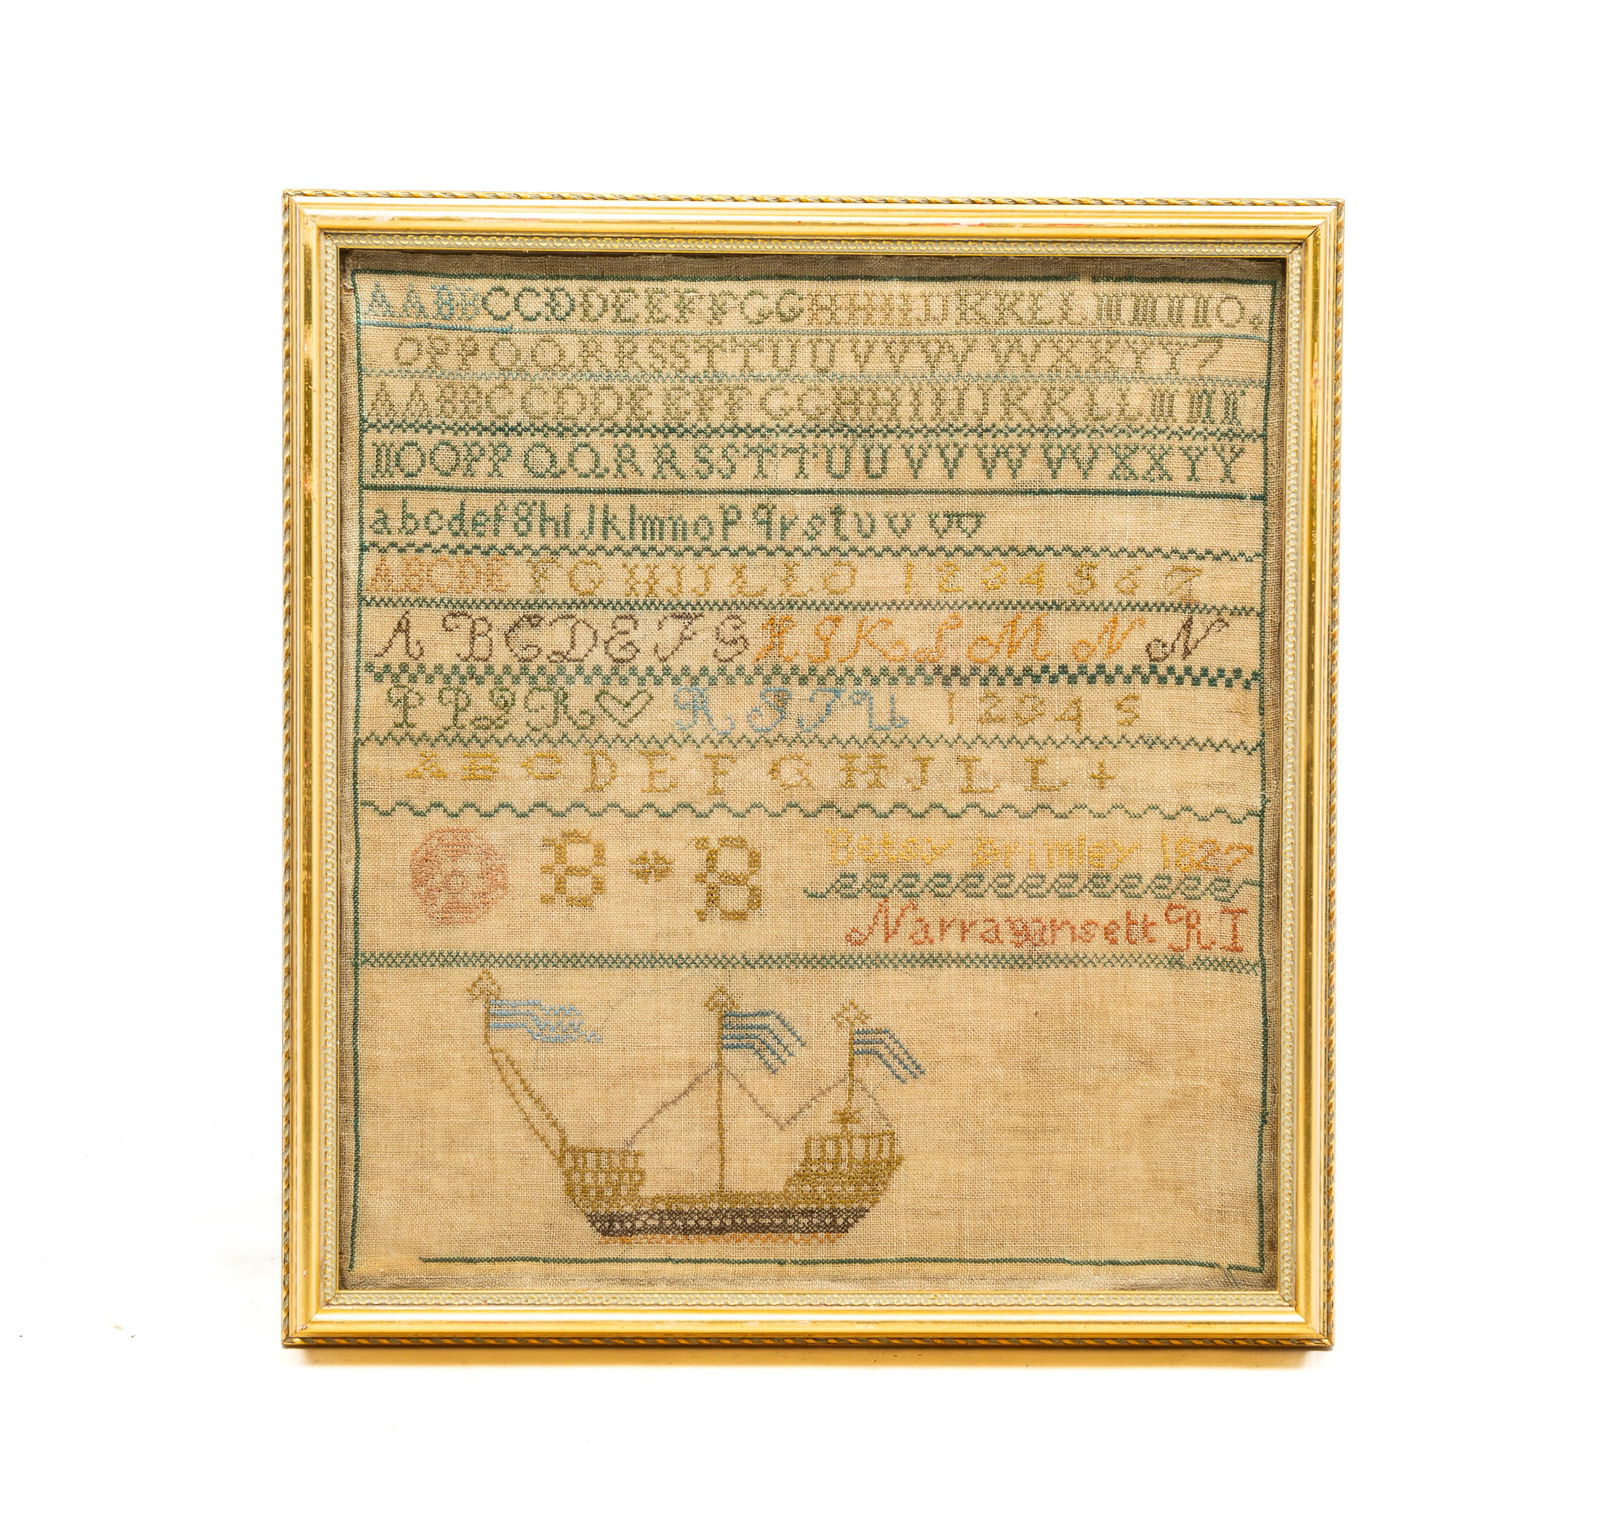 AABBCCDDEEFFGGHHIIJJKKLLMMNNO
OPPQQRRSSTTUUVVWWXXYYZ
AABBCCDDEEFFGGHHIIJJKKLLMMN
NOOPPQQRRSSTTUUVVWWXXYY
abcdefghijklmnopqrstuvw
ABCDEFGHIJLLO 1234567
ABCDEFGHIKLMNN
PPQR♡RSTU 12345
ABCDEFGHJLL+
B B Betsy brimley 1827
Narragansett RI